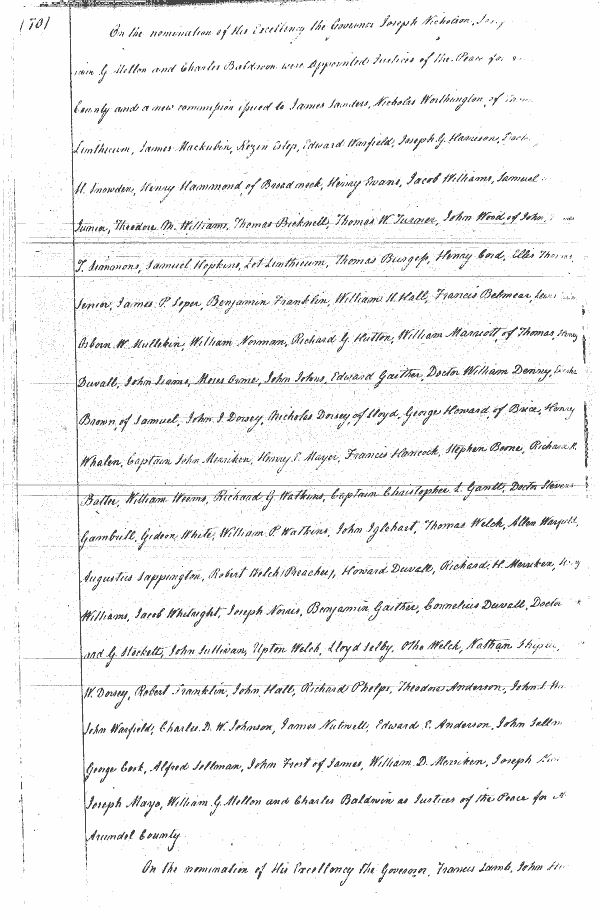 (70)
On the nomination of His Excellency the Governor Joseph Nicholson,
G. Mellon and Charles Baldwin were appointed Justices of the Peace for
County and a new commission issued to James Sanders, Nicholas Worthington, of
Linthicum, James Mackubin, Rezin Estep, Edward Warfield, Joseph G. Harrison,
U. Snowden, Henry Hammond of Broadneck, Henry Evans, Jacob Williams, Samuel
Junior, Theodore M. Williams, Thomas Bicknell, Thomas W. Turner, John Wood, of John,
T. Simmons, Samuel Hopkins, Lot Linthicum, Thomas Burgess, Henry Cord, Ellis Thomas
Senior, James P. Soper, Benjamin Franklin, William H. Hall, Francis Belmear,
Osborn W. Mullikin, William Norman, Richard G. Hutton, William Marriott, of Thomas, Henry
Duvall, John Iiams, Moses Orme, John Johns, Edward Gaither, Doctor William Denny,
Brown, of Samuel, John I. Dorsey, Nicholas Dorsey, of Lloyd, George Howard, of Brice, Henry
Whalen, Captain John Merriken, Henry E. Mayer, Francis Hancock, Stephen Boone, Richard R.
Batter, William Weems, Richard G. Watkins, Captain Christopher L. Gantt, Doctor Stevens
Gambrill, Gideon White, William P. Watkins, John Iglehart, Thomas Welch, Allen Warfield,
Augustus Sappington, Robert Welch (Preacher), Howard Duvall, Richard H. Merriken,
Williams, Jacob Whitright, Joseph Norris, Benjamin Gaither, Cornelius Duvall, Doctor
ard G. Stockett, John Sullivan, Upton Welch, Lloyd Selby, Otho Welch, Nathan
W. Dorsey, Robert Franklin, John Hall, Richard Phelps, Theodore Anderson, John S.
John Warfield, Charles D. W. Johnson, James Nutwell, Edward E. Anderson, John Sellm
George Cook, Alfred Sellman, John Frost of James, William D. Merriken, Joseph
Joseph Mayo, William G. Mellon and Charles Baldwin as Justices of the Peace for A
Arundel County
On the nomination of His Excellency the Governor, Francis Lamb, John